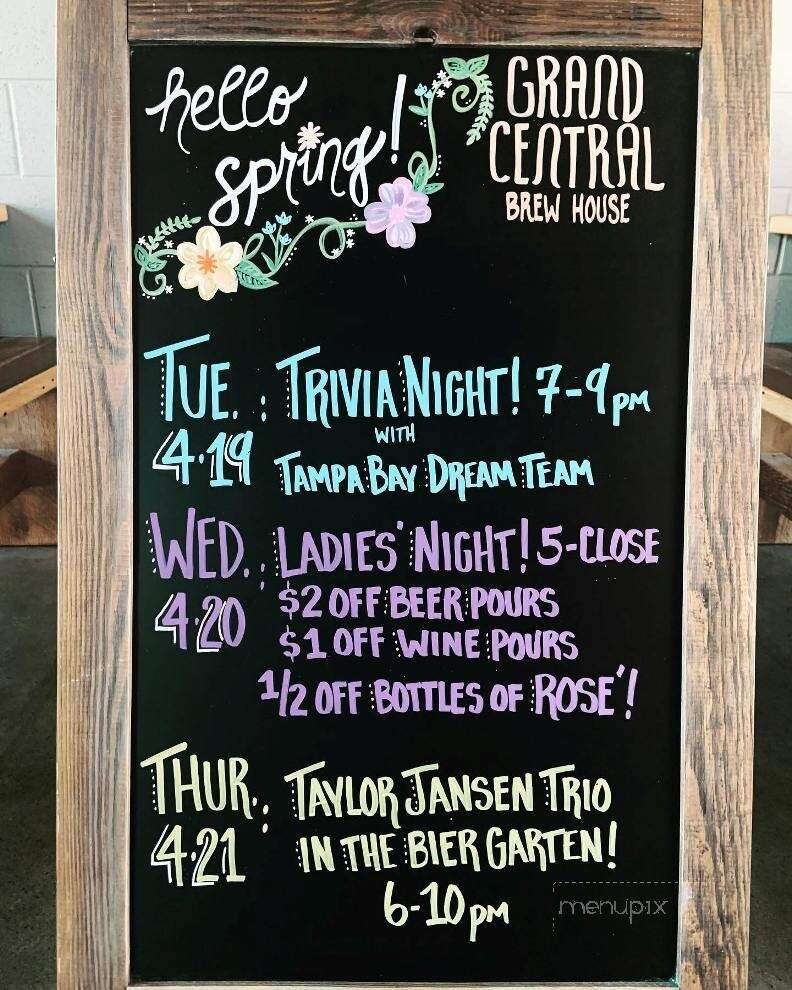 hello
spring!
GRAND
CENTRAL
BREW HOUSE
TUE. : TRIVIA NIGHT! 7-9pm
4.19
WITH
TAMPA BAY DREAM TEAM
WED. : LADIES' NIGHT! 5-CLOSE
4.20
$2 OFF BEER POURS
$1 OFF WINE POURS
1/2 OFF BOTTLES OF ROSE'!
THUR. : TAYLOR JANSEN TRIO
4.21
IN THE BIER GARTEN!
6-10pm
menupix